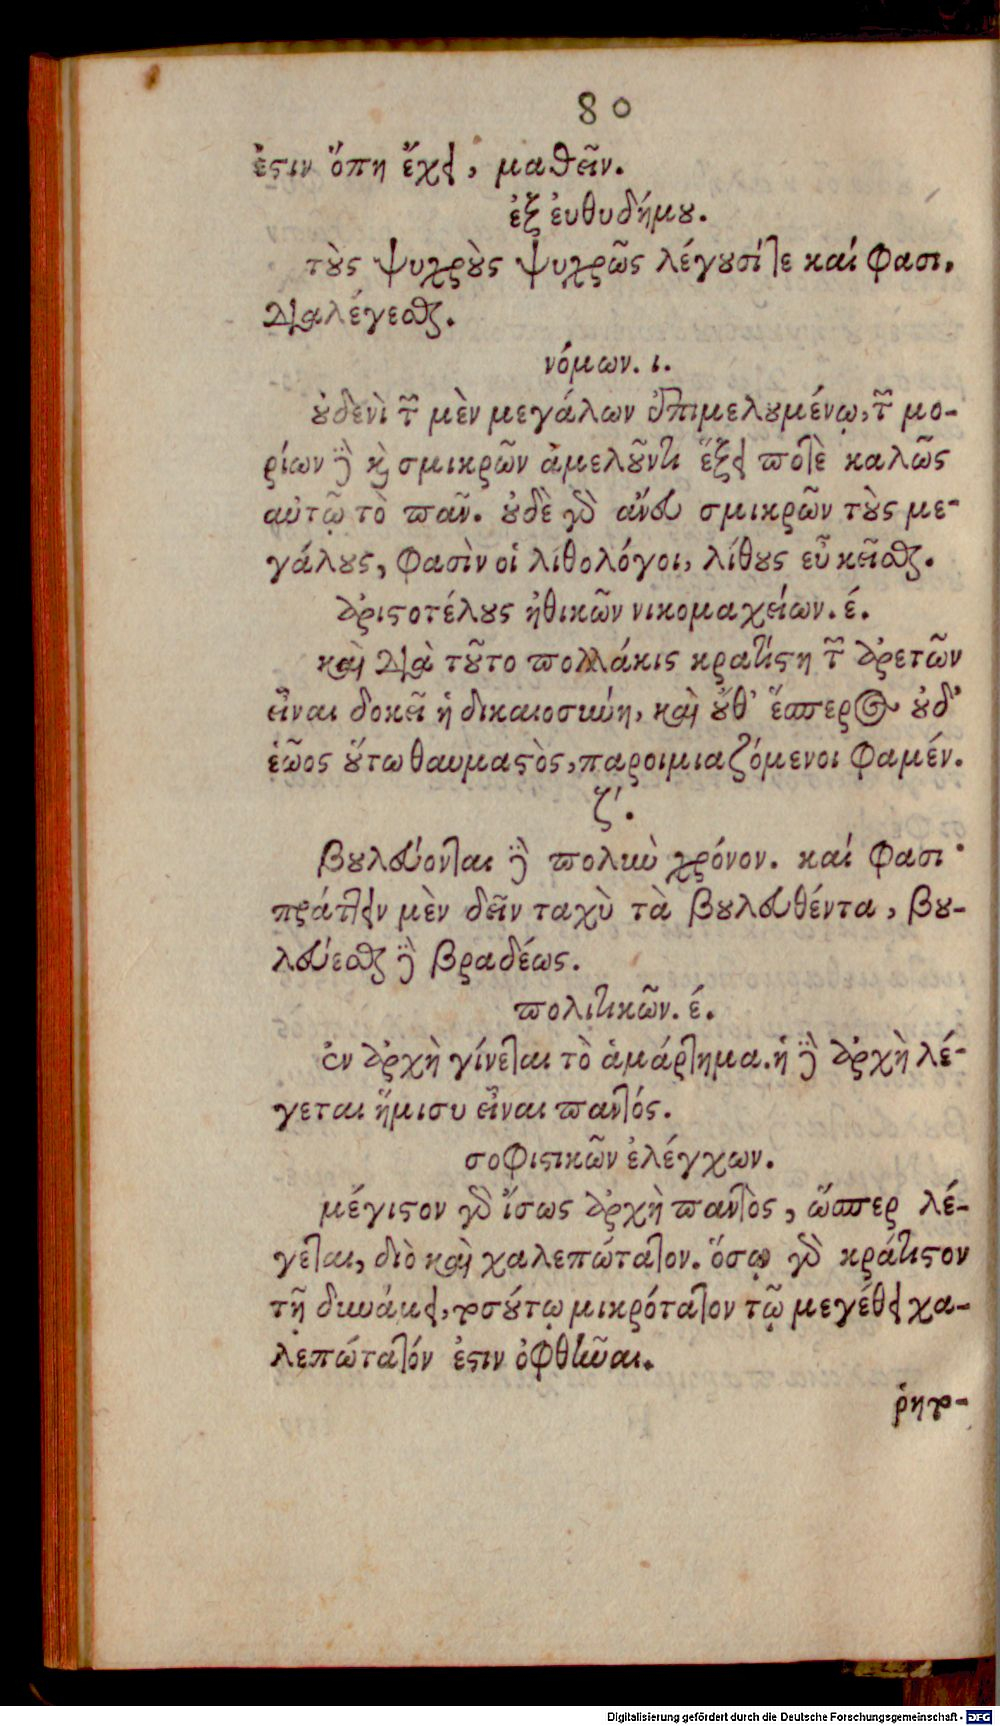 80
ἐστιν ὅπη ἔχει, μαθεῖν.
ἐξ ἐυθυδήμου.
τοὺς ψυχροὺς ψυχρῶς λέγουσί τε καί φασι,
διαλέγεσθαι.
νόμων. ι.
οὐδενὶ τῶν μὲν μεγάλων ἐπιμελουμένῳ, τῶν μο-
ρίων δὲ καὶ σμικρῶν ἀμελοῦντι ἕξει ποτὲ καλῶς
αὐτῷ τὸ πᾶν. οὐδὲ γὰρ ἄνευ σμικρῶν τοὺς με-
γάλους, φασὶν οἱ λιθολόγοι, λίθους εὖ κεῖσθαι.
ἀριστοτέλους ἠθικῶν νικομαχείων. έ.
καὶ διὰ τοῦτο πολλάκις κρατίστη τῶν ἀρετῶν
εἶναι δοκεῖ ἡ δικαιοσύνη, καὶ οὔθ' ἕσπερος οὐδ'
ἑῶος οὕτω θαυμαστὸς, παροιμιαζόμενοι φαμέν.
ζ'.
βουλεύονται δὲ πολὺν χρόνον. καί φασι
πράττειν μὲν δεῖν ταχὺ τὰ βουλευθέντα, βου-
λεύεσθαι δὲ βραδέως.
πολιτικῶν. έ.
ἐν ἀρχῇ γίνεται τὸ ἁμάρτημα. ἡ δὲ ἀρχὴ λέ-
γεται ἥμισυ εἶναι παντός.
σοφιστικῶν ἐλέγχων.
μέγιστον γὰρ ἴσως ἀρχὴ παντὸς, ὥσπερ λέ-
γεται, διὸ καὶ χαλεπώτατον. ὅσῳ γὰρ κράτιστον
τῇ δυνάμει, τοσούτῳ μικρότατον τῷ μεγέθει χα-
λεπώτατόν ἐστιν ὀφθῆναι.
ῥητο-
Digitalisierung gefördert durch die Deutsche Forschungsgemeinschaft - DFG